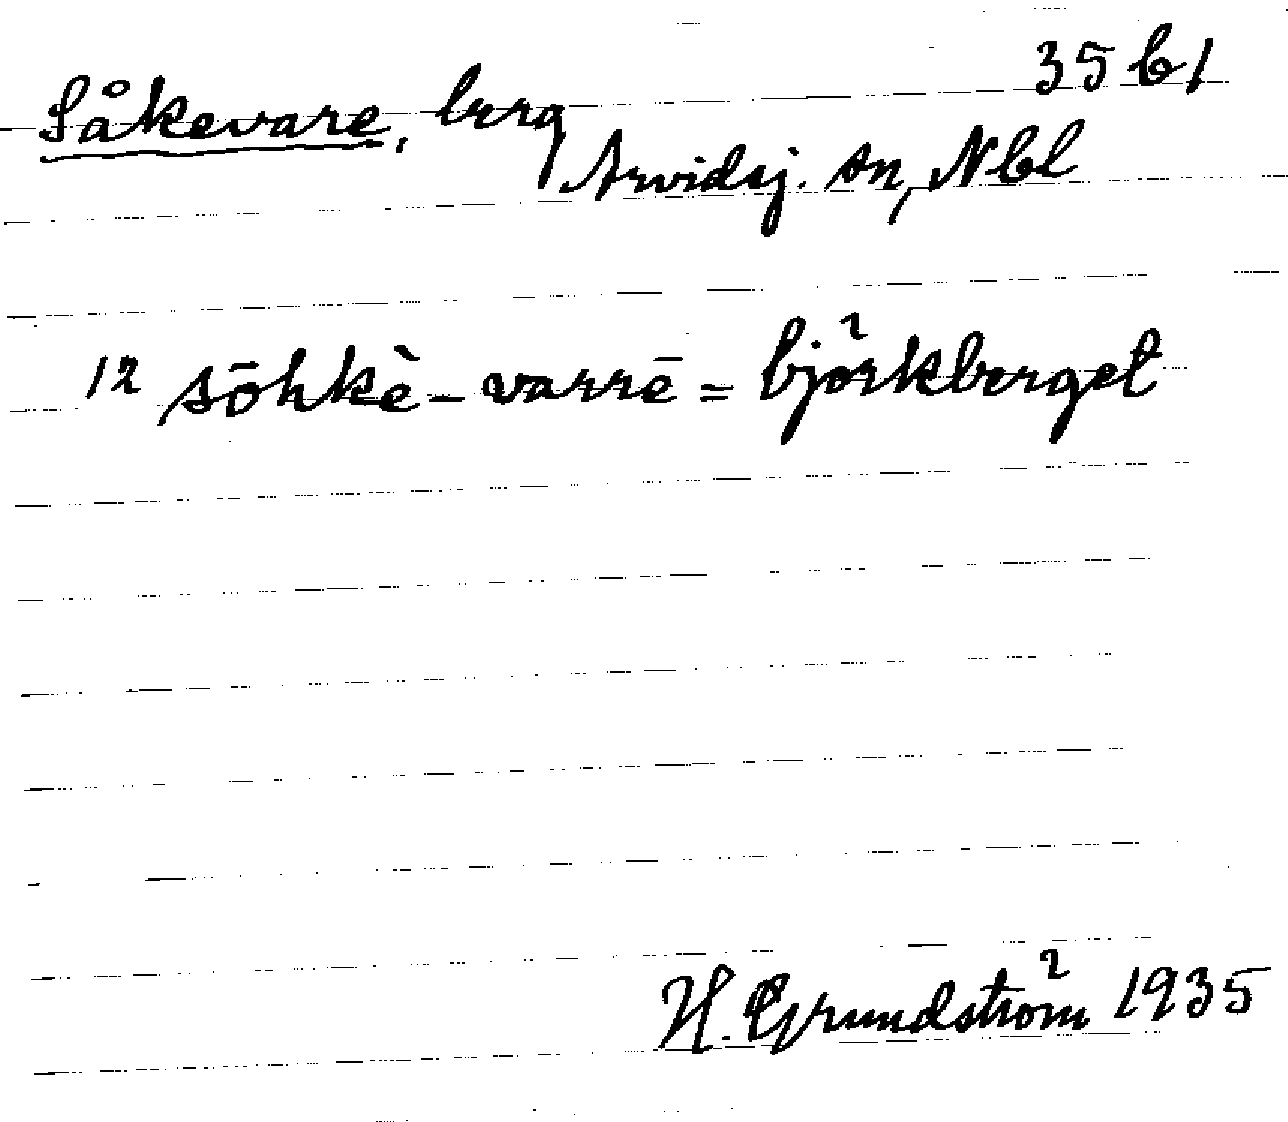 35 b 1
Såkevare, berg
Arvidsj. sn, Nbl
12 sōhkè-varrē = björkberget
H. Grundström 1935